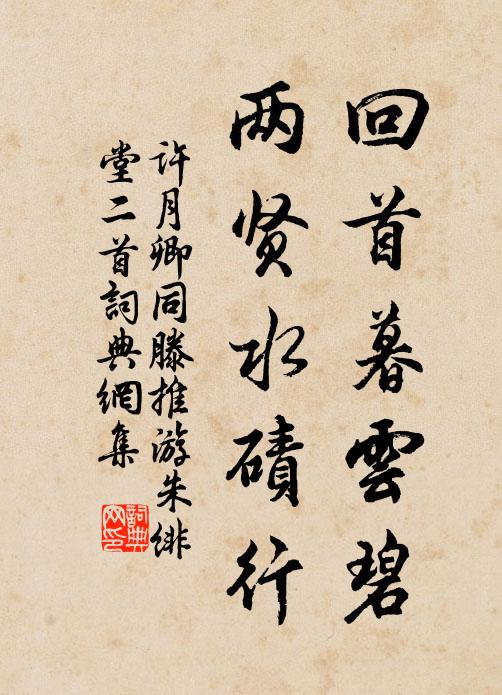 回首暮雲碧
两贤水磧行
许月卿同滕推游朱绯
堂二首詞典網集
詞典网印